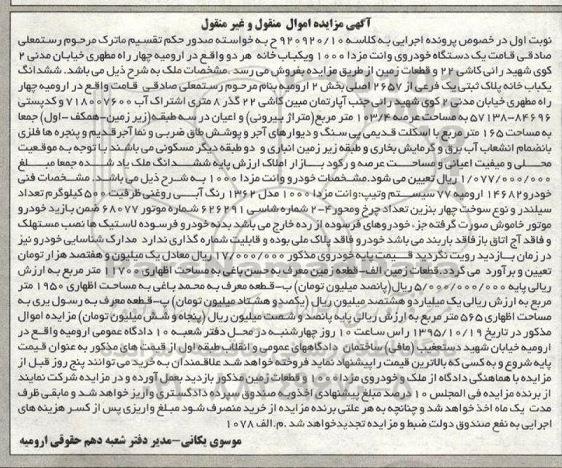 آگهی مزایده اموال منقول و غیر منقول
نوبت اول در خصوص پرونده اجرایی به کلاسه ۹۲۰۹۲۰/۱۰ ح به خواسته صدور حکم تقسیم ماترک مرحوم رستمعلی
صادقی قامت یک دستگاه خودروی وانت مزدا ۱۰۰۰ ویکباب خانه هر دو واقع در ارومیه چهار راه مطهری خیابان مدنی ۲
کوی شهید رانی کاشی ۲۲ و قطعات زمین از طریق مزایده بفروش می رسد. مشخصات ملک به شرح ذیل می باشد. ششدانگ
یکباب خانه پلاک ثبتی یک فرعی از ۲۶۵۷ اصلی بخش ۲ ارومیه بنام مرحوم رستمعلی صادقی قامت واقع در ارومیه چهار
راه مطهری خیابان مدنی ۲ کوی شهید رانی جنب آپارتمان مبین کاشی ۲۲ گذر ۸ متری اشتراک آب ۷۱۱۸۰۰۷۶۰۰ و کدپستی
۸۴۶۹۶-۵۷۱۳۸ به مساحت عرصه ۱۰۳/۴ متر مربع (متراژ بیرونی) و اعیان در سه طبقه (زیر زمین-همکف -اول) جمعا
به مساحت ۱۶۵ متر مربع در اسکلت قدیمی پی سنگ و دیوارهای آجر و پوشش طاق ضربی و نما آجر قدیم و پنجره ها فلزی
بانضمام انشعاب آب برق و گرمایش بخاری و طبقه زیر زمین انباری و دو طبقه دیگر مسکونی می باشند با توجه به موقعیت
محلی و میفیت اعیانی و مساحت عرصه و رکود بازار املاک ارزش پایه ششدانگ ملک یاد شده جمعا مبلغ
۱/۰۷۷/۰۰۰/۰۰۰ ریال تعیین می شود. مشخصات خودرو وانت مزدا ۱۰۰۰ به شرح ذیل می باشد. مشخصات فنی
خودرو ۱۴۶۸۲ ارومیه ۷۷ سیستم وتیپ: وانت مزدا ۱۰۰۰ مدل ۱۳۶۲ رنگ آبی روغنی ظرفیت ۵۰۰ کیلوگرم تعداد
سیلندر و نوع سوخت چهار بنزین تعداد چرخ ومحور ۴-۲ شماره شاسی ۶۲۶۲۹۱ شماره موتور ۶۸۰۷۷ ضمن بازید خودرو
موتور خاموش صورت گرفته جزء خودروهای فرسوده از رده خارج می باشد بدنه خودرو فرسوده لاستیک ها نصب مستهلک
و فاقد آج اتاق بار فاقد باربند می باشد خودرو فاقد پلاک ملی بوده و قابلیت شماره گذاری ندارد مدارک شناسایی خودرو نیز
در زمان بازدید رویت نگردید قیمت پایه خودروی مذکور ۱۷/۰۰۰/۰۰۰ ریال معادل یک میلیون و هفتصد هزار تومان
تعیین و برآورد می گردد. قطعات زمین الف-قطعه زمین معرف به حسن باغی به مساحت اظهاری ۱۱۷۰۰ متر مربع به ارزش
ریالی پایه ۵/۰۰۰/۰۰۰/۰۰۰ ریال (پانصد میلیون تومان) ب-قطعه معرف به محمد باغی به مساحت اظهاری ۱۹۵۰ متر
مربع به ارزش ریالی یک میلیارد و هشتصد میلیون ریال (یکصد و هشتاد میلیون تومان) پ-قطعه معرف به رسول یری به
مساحت اظهاری ۵۶۵ متر مربع به ارزش ریالی پایه پانصد و شصت میلیون ریال (پنجاه و شش میلیون تومان) مزایده اموال
مذکور در تاریخ ۱۳۹۵/۱۰/۱۹ راس ساعت ۱۰ روز چهارشنبه در محل دفتر شعبه ۱۰ دادگاه عمومی ارومیه واقع در
ارومیه خیابان شهید دستغیب (مافی) ساختمان دادگاههای عمومی و انقلاب طبقه اول از قیمت های مذکور به عنوان قیمت
پایه شروع و به کسی که بالاترین قیمت را پیشنهاد نماید فروخته خواهد شد علاقمندان به خرید می توانند پنج روز قبل از
مزایده با هماهنگی دادگاه از ملک و خودروی مزدا ۱۰۰۰ و قطعات زمین مذکور بازدید بعمل آورده و در مزایده شرکت نمایند
از برنده مزایده فی المجلس ۱۰ درصد مبلغ پیشنهادی اخذ و به صندوق سپرده دادگستری واریز خواهد شد و مابقی ظرف
مدت یک ماه اخذ خواهد شد و چنانچه به هر علتی برنده مزایده از خرید منصرف شود مبلغ واریزی پس از کسر هزینه های
اجرایی به نفع صندوق دولت ضبط و مزایده تجدید خواهد شد .م.الف ۱۰۷۸
موسوی یکانی-مدیر دفتر شعبه دهم حقوقی ارومیه